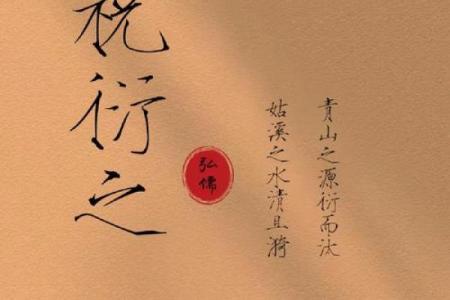 祝衍之
弘儒
青山之源衍而汰
姑溪之水清且漪